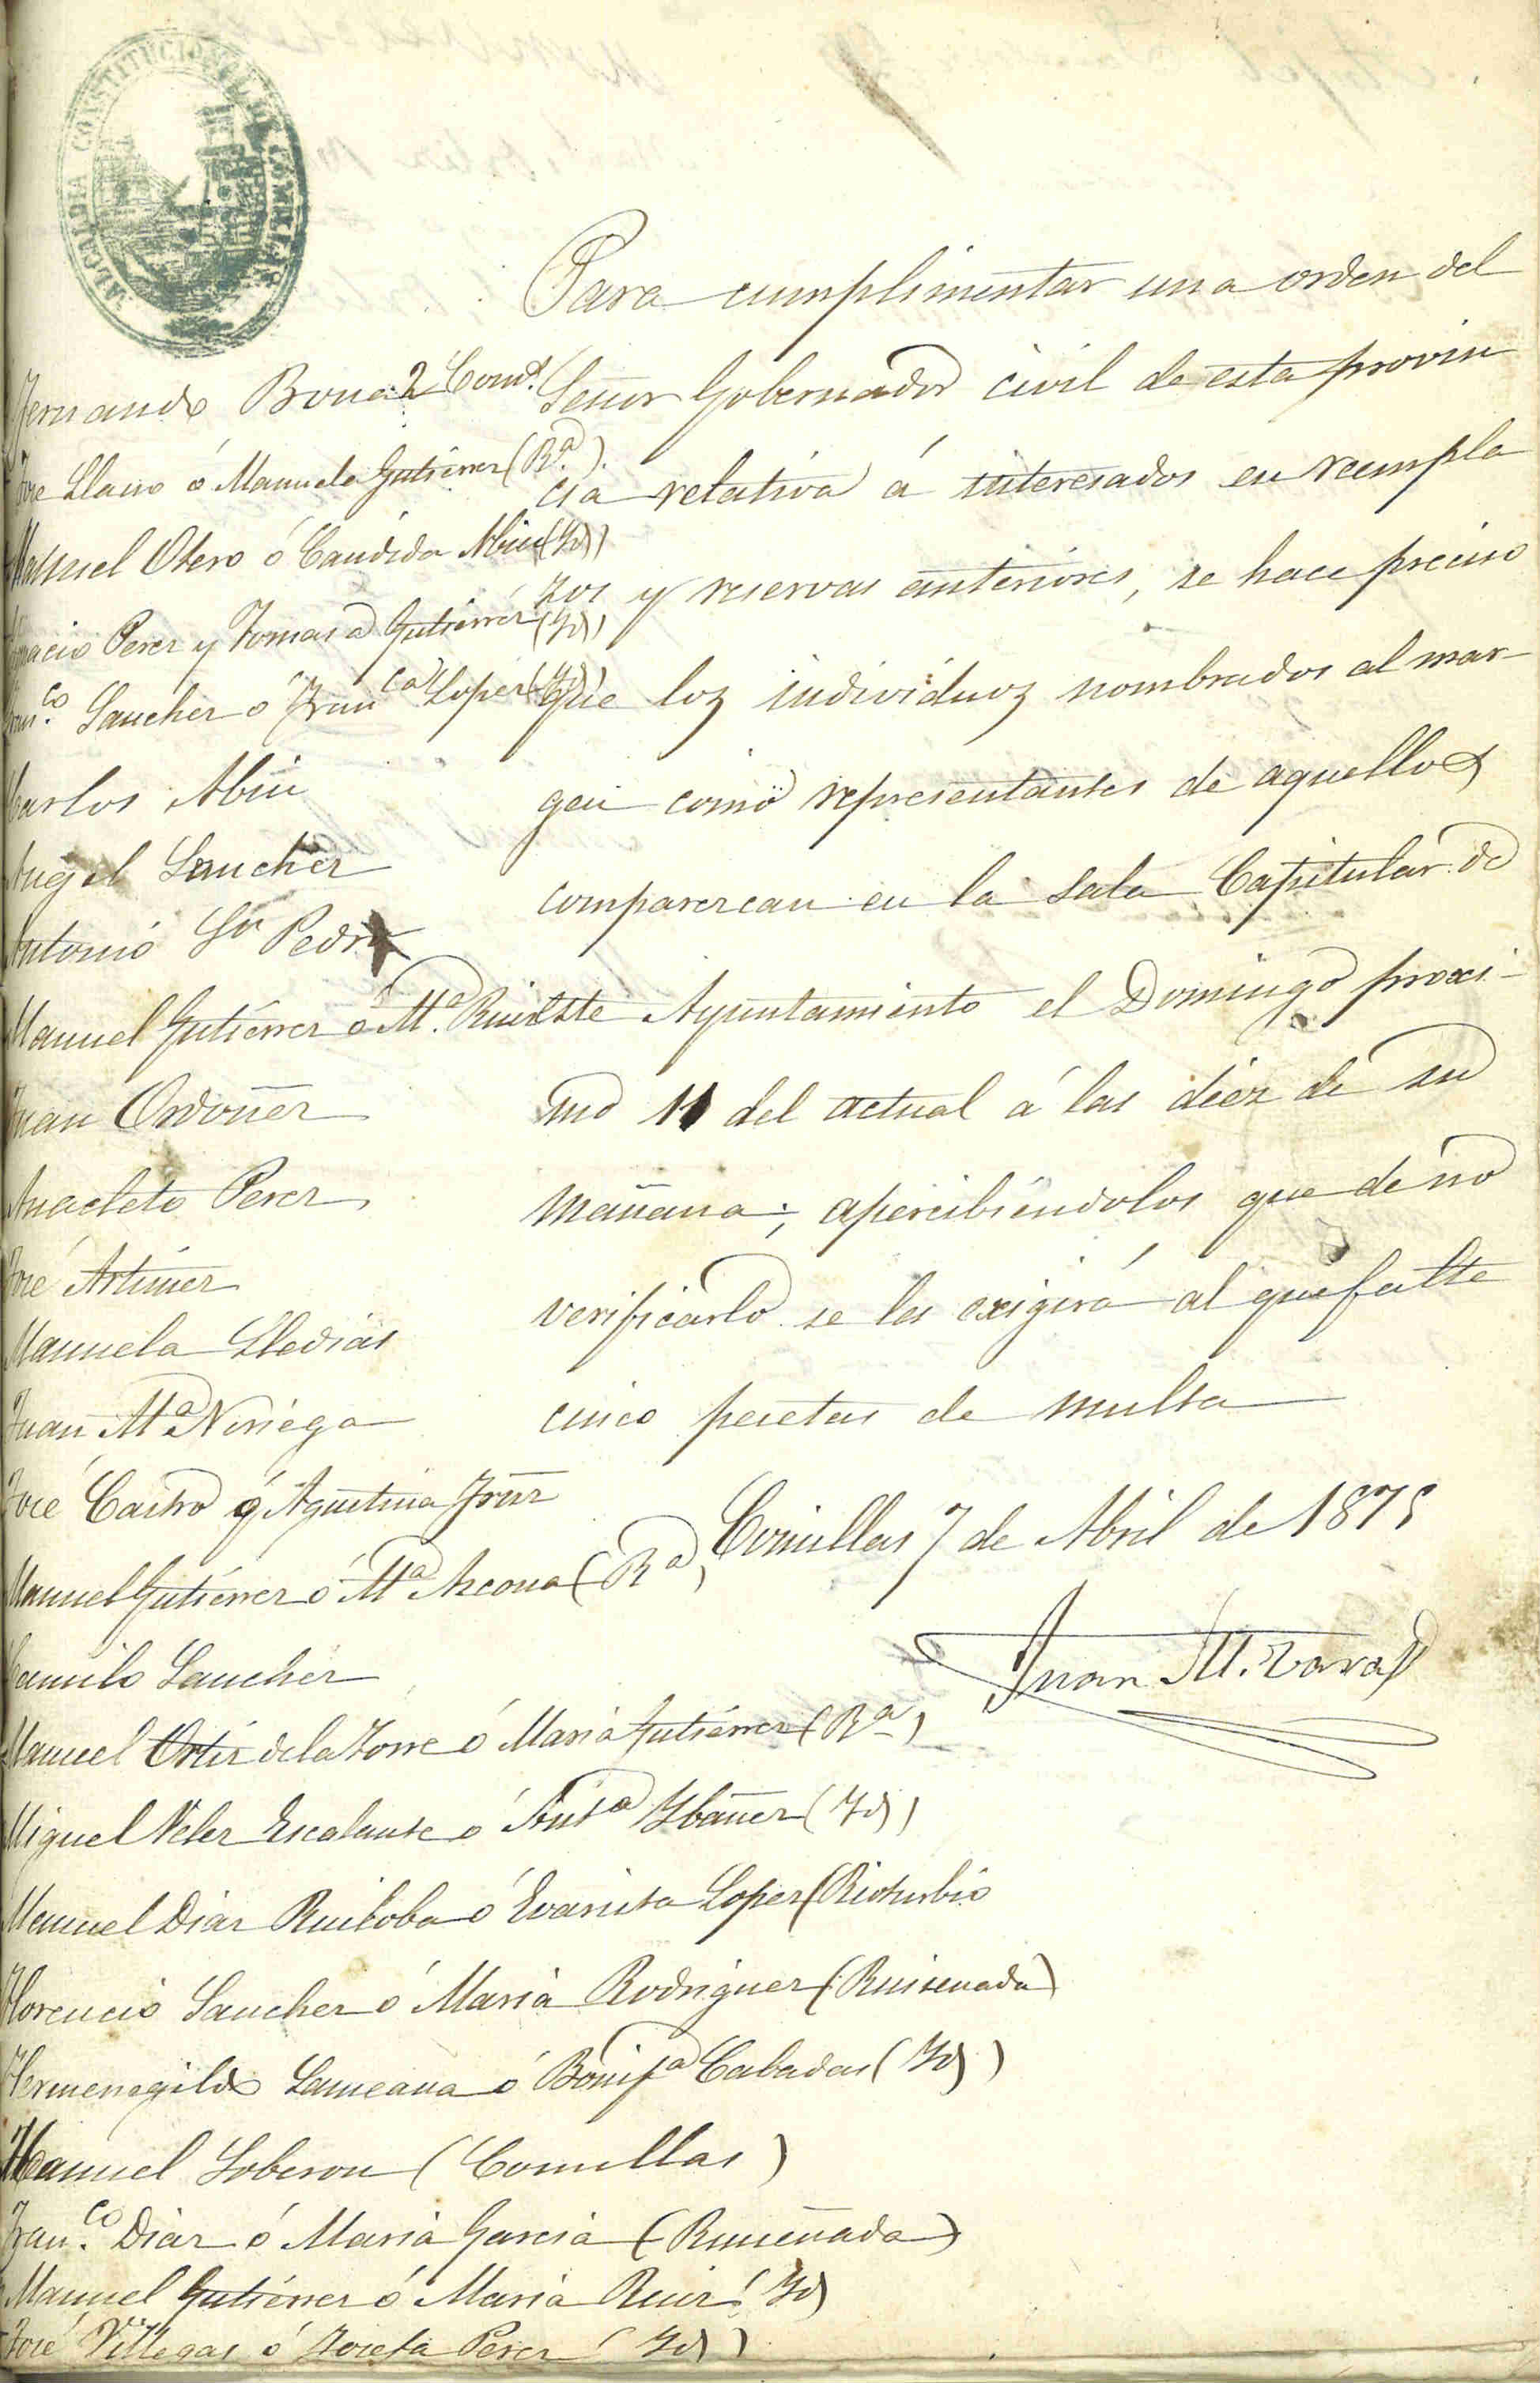 ALCALDIA CONSTITUCIONAL DE COMILLAS
Para cumplimentar una orden del
Señor Gobernador civil de esta provin
cia relativa á interesados en reempla
zos y reservas anteriores, se hace preciso
que loz individuoz nombrados al mar-
gen como representantes de aquellos
comparezcan en la sala Capitular de
este Ayuntamiento el Domingo proxi-
mo 11 del actual á las diez de su
mañana; apercibiéndolos que de no
verificarlo se les exigirá al que falte
cinco pesetas de multa
Comillas 7 de Abril de 1875
Juan M. Zaras
Fernando Bonez Com.ˢ
José Llano ó Manuela Gutiérrez (Rª.).
Manuel Otero ó Candida Abin (Yd)
Ygnacio Perez y Tomasa Gutiérrez (Yd)
Fran.co Sanchez ó Franca Lopez (Yd)
Carlos Abin
Angel Sanchez
Antonio Sn Pedro
Manuel Gutiérrez ó Mª. Ruiz
Juan Ordoñez
Anacleto Perez
José Artimez
Manuela Lledias
Juan Mª Noriega
José Castro ó Agustina Frnz
Manuel Gutiérrez ó Mª Azcona (Rª)
Camilo Sanchez
Manuel Ortiz de la Torre ó Maria Gutiérrez (Rª)
Miguel Velez Escalante ó Antª Ybañez (Yd)
Manuel Diaz Ruiloba ó Evarista Lopez (Rioturbio
Florencio Sanchez ó Maria Rodriguez (Ruiseñada)
Hermenegildo Lameana ó Bonifª Cabadas (Yd)
Manuel Soberon (Comillas)
Fran.co Diaz ó Maria Garcia (Ruiseñada)
Manuel Gutiérrez ó Maria Ruiz (Yd)
José Villegas ó Josefa Perez (Yd)